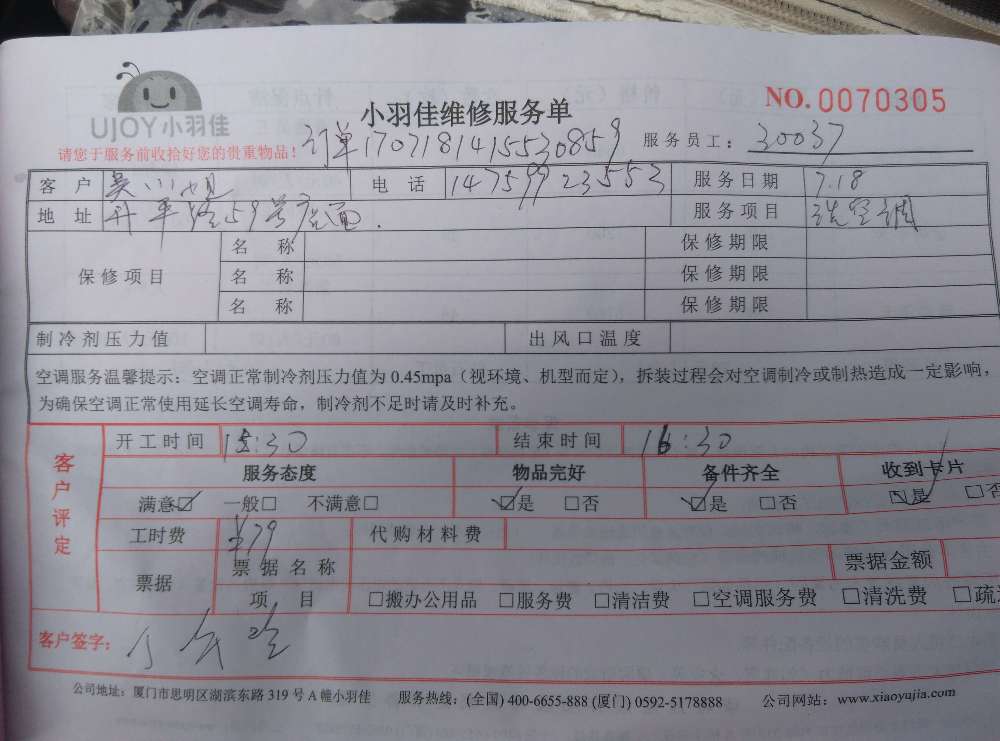 UJOY小羽佳
小羽佳维修服务单
NO.0070305
请您于服务前收拾好您的贵重物品！
订单170718141553​0859
服务员工： 30037
客 户 电 话 14759923553 服务日期 7.18
地 址 升平路59号店面. 服务项目 洗空调
保修项目 名 称 保修期限
名 称 保修期限
名 称 保修期限
制冷剂压力值 出风口温度
空调服务温馨提示：空调正常制冷剂压力值为 0.45mpa（视环境、机型而定），拆装过程会对空调制冷或制热造成一定影响，
为确保空调正常使用延长空调寿命，制冷剂不足时请及时补充。
客户评定
开工时间 15:30 结束时间 16:30
服务态度 物品完好 备件齐全 收到卡片
满意☑ 一般□ 不满意□ ☑是 □否 ☑是 □否 ☑是 □否
工时费 ¥79 代购材料费
票据 票据名称 票据金额
项 目 □搬办公用品 □服务费 □清洁费 □空调服务费 □清洗费 □疏
客户签字：
公司地址：厦门市思明区湖滨东路 319 号 A 幢小羽佳 服务热线：(全国) 400-6655-888 (厦门) 0592-5178888 公司网站：www.xiaoyujia.com